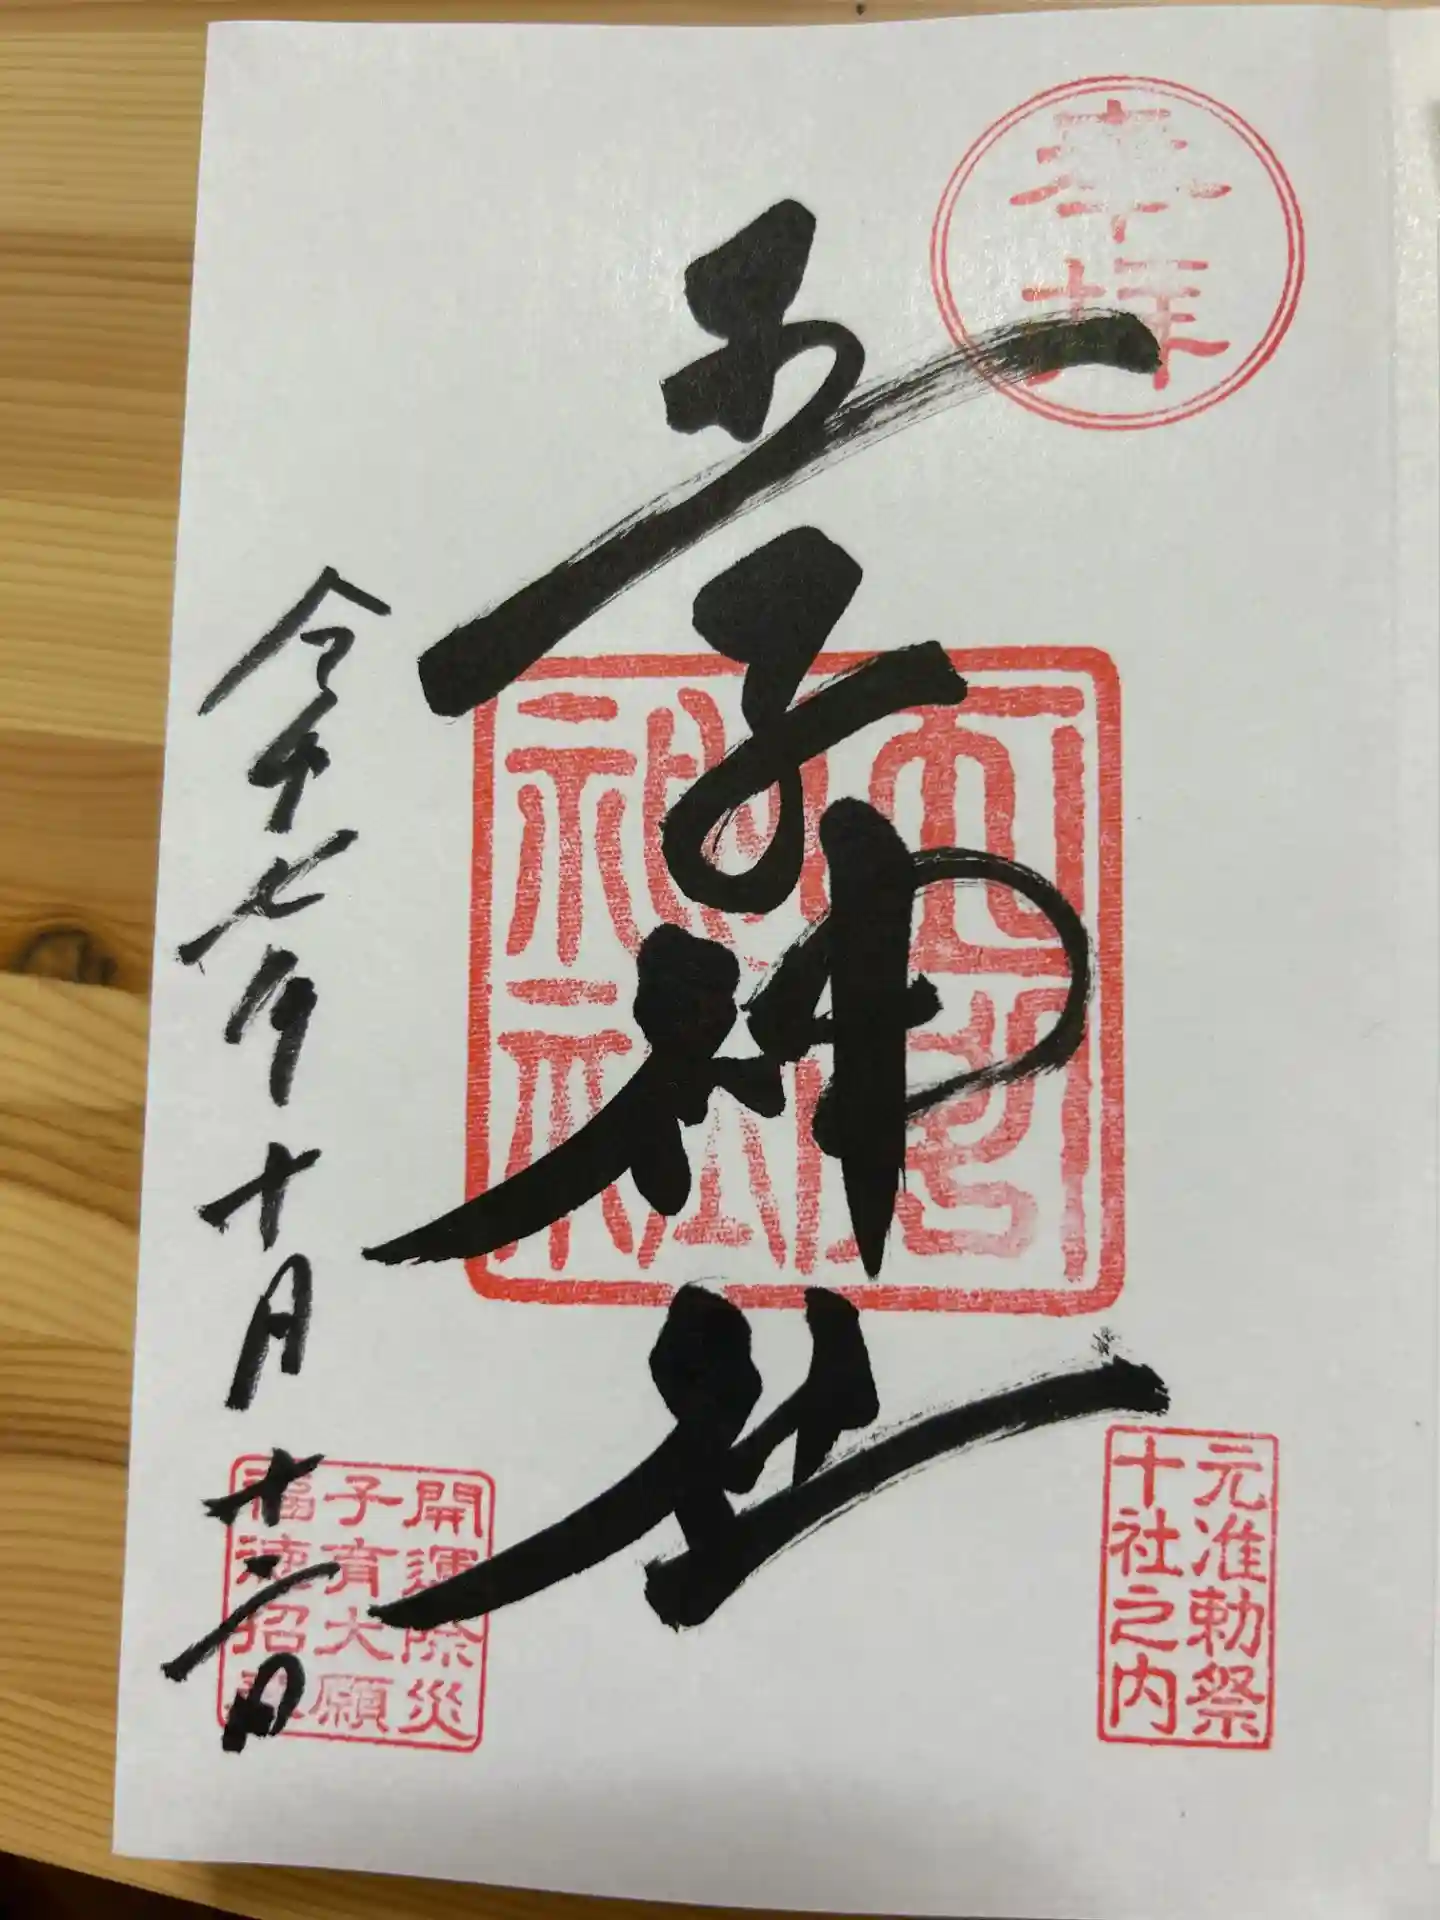 奉拝
元准勅祭
十社之内
王子神社
開運除災
子育大願
福徳招
令和七年十月十二日